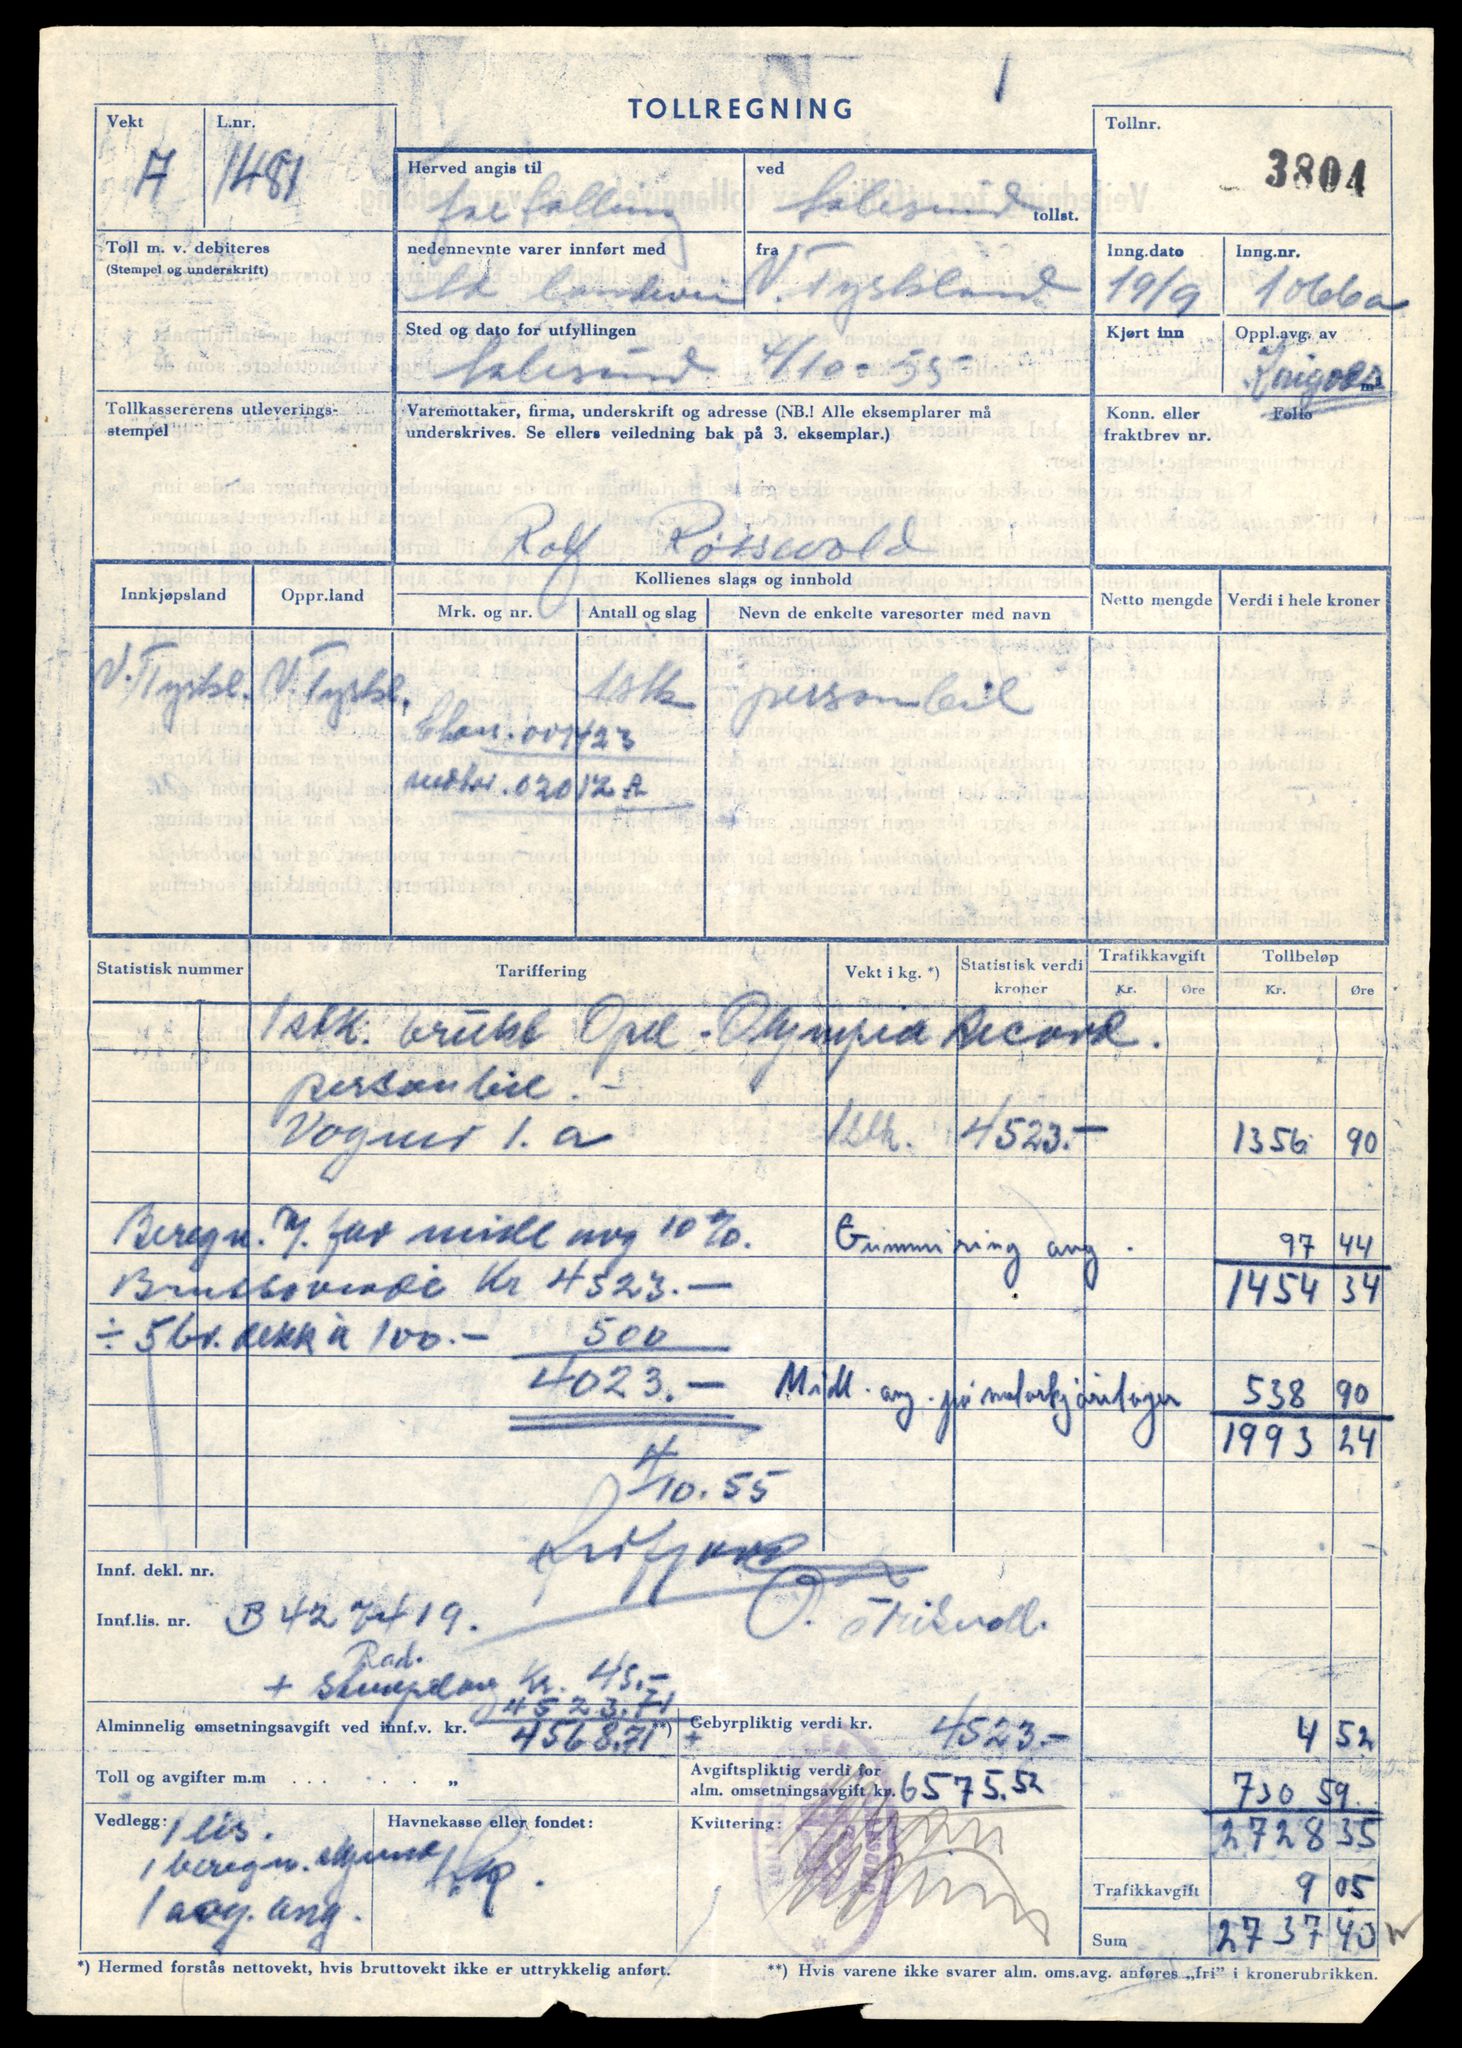 TOLLREGNING
Vekt
A
L.nr.
1481
Toll m. v. debiteres
(Stempel og underskrift)
Tollkassererens utleverings-
stempel
Herved angis til
fortolling
ved
Aalesund tollst.
nedennevnte varer innført med
fra
V. Tyskland
Sted og dato for utfyllingen
Aalesund 4/10-55
Varemottaker, firma, underskrift og adresse (NB.! Alle eksemplarer må
underskrives. Se ellers veiledning bak på 3. eksemplar.)
Rolf
Tollnr.
3804
Inng.dato
19/9
Inng.nr.
1066a
Kjørt inn
Oppl.avg. av
m²
Konn. eller
fraktbrev nr.
Folio
Innkjøpsland
Oppr.land
Kollienes slags og innhold
Mrk. og nr.
Antall og slag
Nevn de enkelte varesorter med navn
Netto mengde
Verdi i hele kroner
V. Tyskl. V. Tyskl. 1 stk personbil
001423
motor. 02012 A
Statistisk nummer
Tariffering
Vekt i kg. *)
Statistisk verdi
kroner
Trafikkavgift
Kr. Øre
Tollbeløp
Kr. Øre
1 stk. brukt Opel - Olympia Record.
personbil.
Vogner 1. a 1 stk. 4523.- 1356 90
Beregn. av midl avg 10%. Gummiring avg. 97 44
Bruttoverdi Kr 4523.- 1454 34
÷ 5 br. dekk à 100.- 500
4023.- Midl. avg. på motorkjøretøyer 538 90
1993 24
4/10.55
Innf. dekl. nr.
Innf.lis. nr. B 427419.
Rad.
+ Kr. 45.-
4523.71
Alminnelig omsetningsavgift ved innf.v. kr. 4568.71 **)
Gebyrpliktig verdi kr. 4523.- 4 52
+
Toll og avgifter m.m . . . . . . „
Avgiftspliktig verdi for
alm. omsetningsavgift kr. 6575.52 730 59
2728 35
Vedlegg:
1 lis.
1 beregn.
1 avg. ang.
Havnekasse eller fondet:
Kvittering:
Trafikkavgift 9 05
Sum 2737 40
*) Hermed forstås nettovekt, hvis bruttovekt ikke er uttrykkelig anført.
**) Hvis varene ikke svarer alm. oms.avg. anføres „fri” i kronerubrikken.